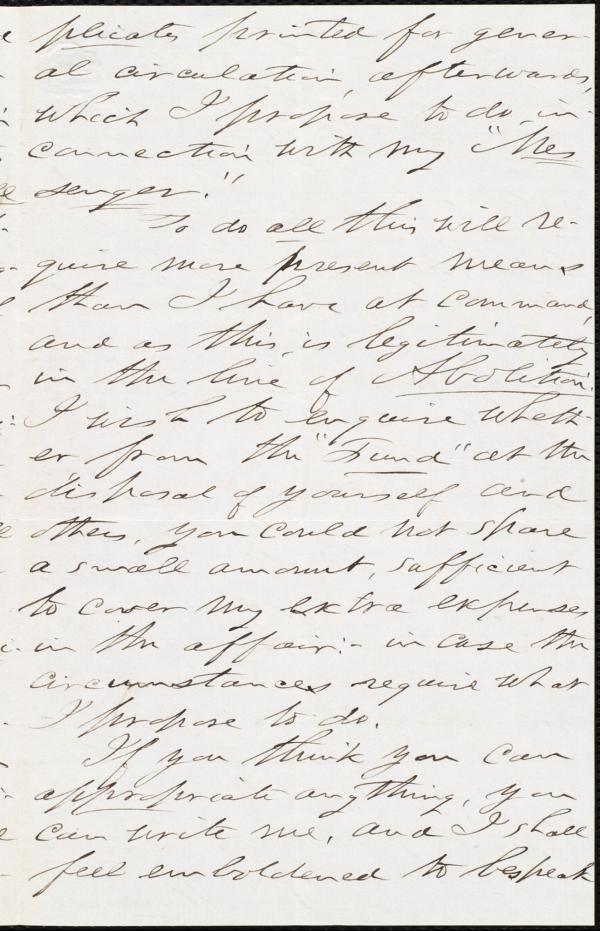 plicates printed for gener-
al circulation, afterwards,
which I propose to do, in
connection with my "Mes
senger."
To do all this will re-
quire more present means
than I have at command,
and as this, is legitimately
in the line of Abolition.
I wish to enquire wheth-
er from the "Fund" at the
disposal of yourself and
others, you could not spare
a small amount, sufficient
to cover my extra expenses
in the affair:- in case the
circumstances require what
I propose to do.
If you think you can
appropriate anything, you
can write me, and I shall
feel emboldened to bespeak